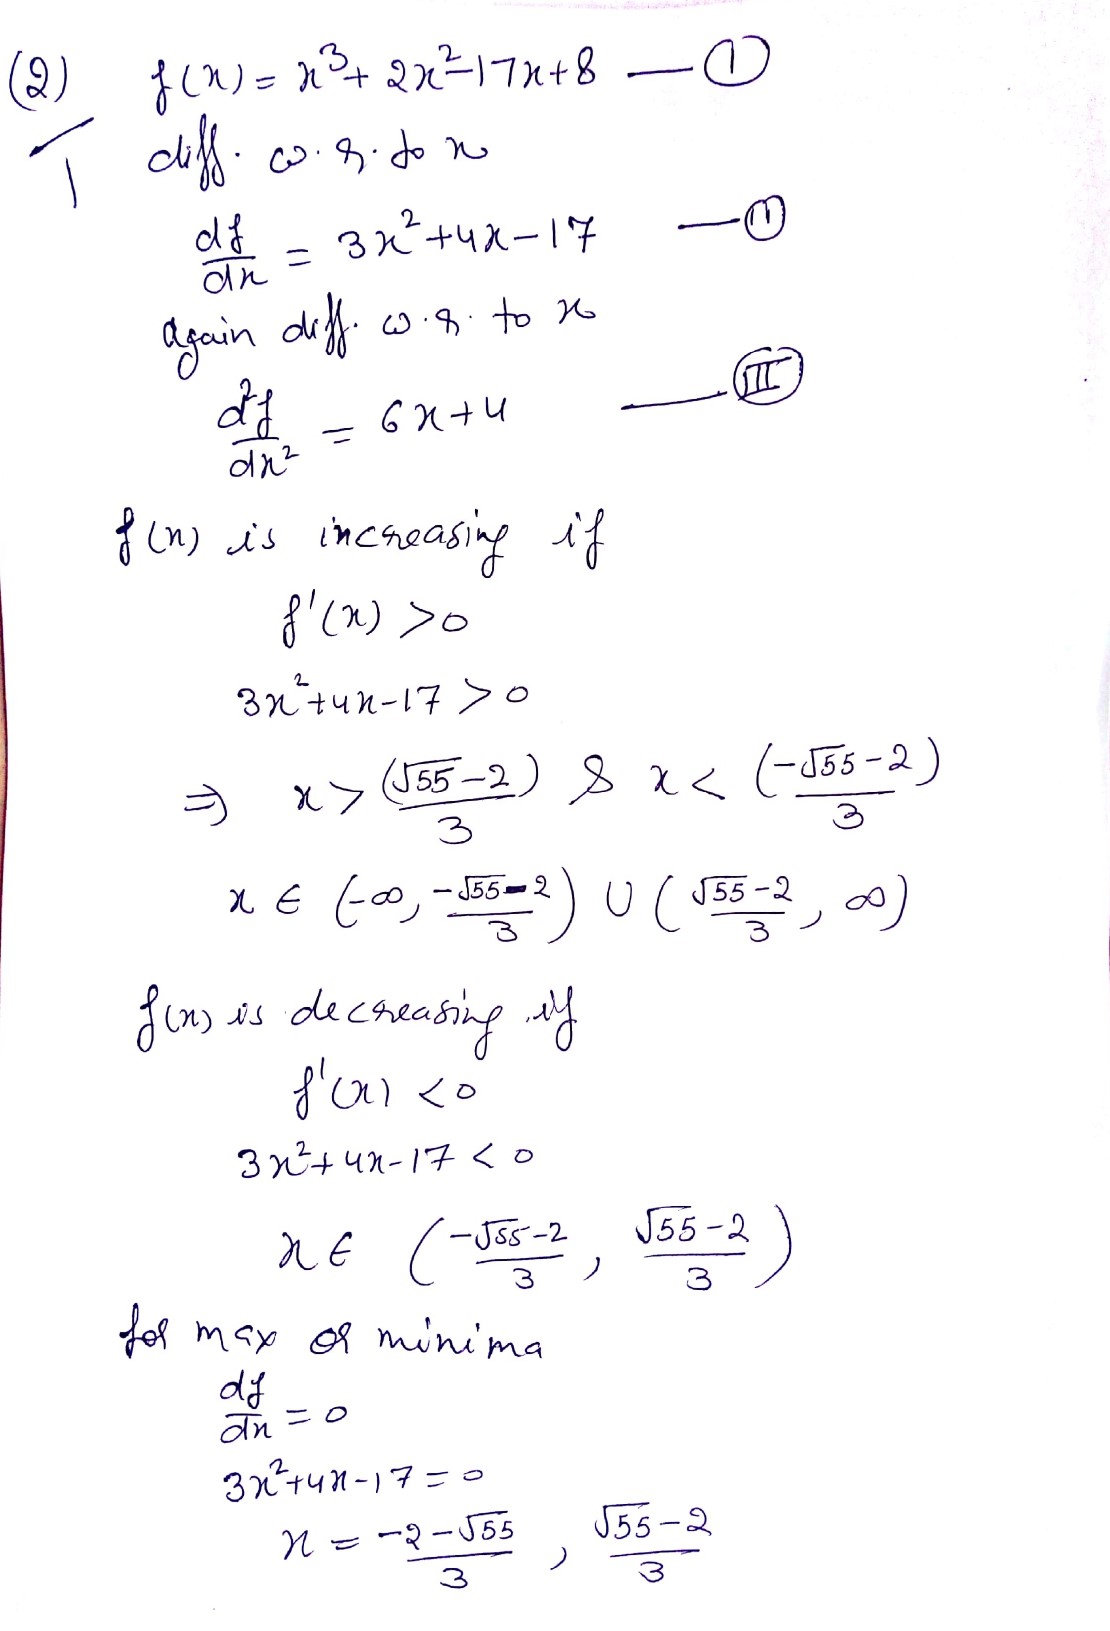 (2) f(x) = x³ + 2x² - 17x + 8 — (I)
1
diff. w.r. to x
df/dx = 3x² + 4x - 17 — (II)
Again diff. w.r. to x
d²f/dx² = 6x + 4 — (III)
f(x) is increasing if
f'(x) > 0
3x² + 4x - 17 > 0
⇒ x > (√55 - 2)/3 & x < (-√55 - 2)/3
x ∈ (-∞, (-√55 - 2)/3) ∪ ((√55 - 2)/3, ∞)
f(x) is decreasing if
f'(x) < 0
3x² + 4x - 17 < 0
x ∈ ((-√55 - 2)/3, (√55 - 2)/3)
for max or minima
df/dx = 0
3x² + 4x - 17 = 0
x = (-2 - √55)/3, (√55 - 2)/3